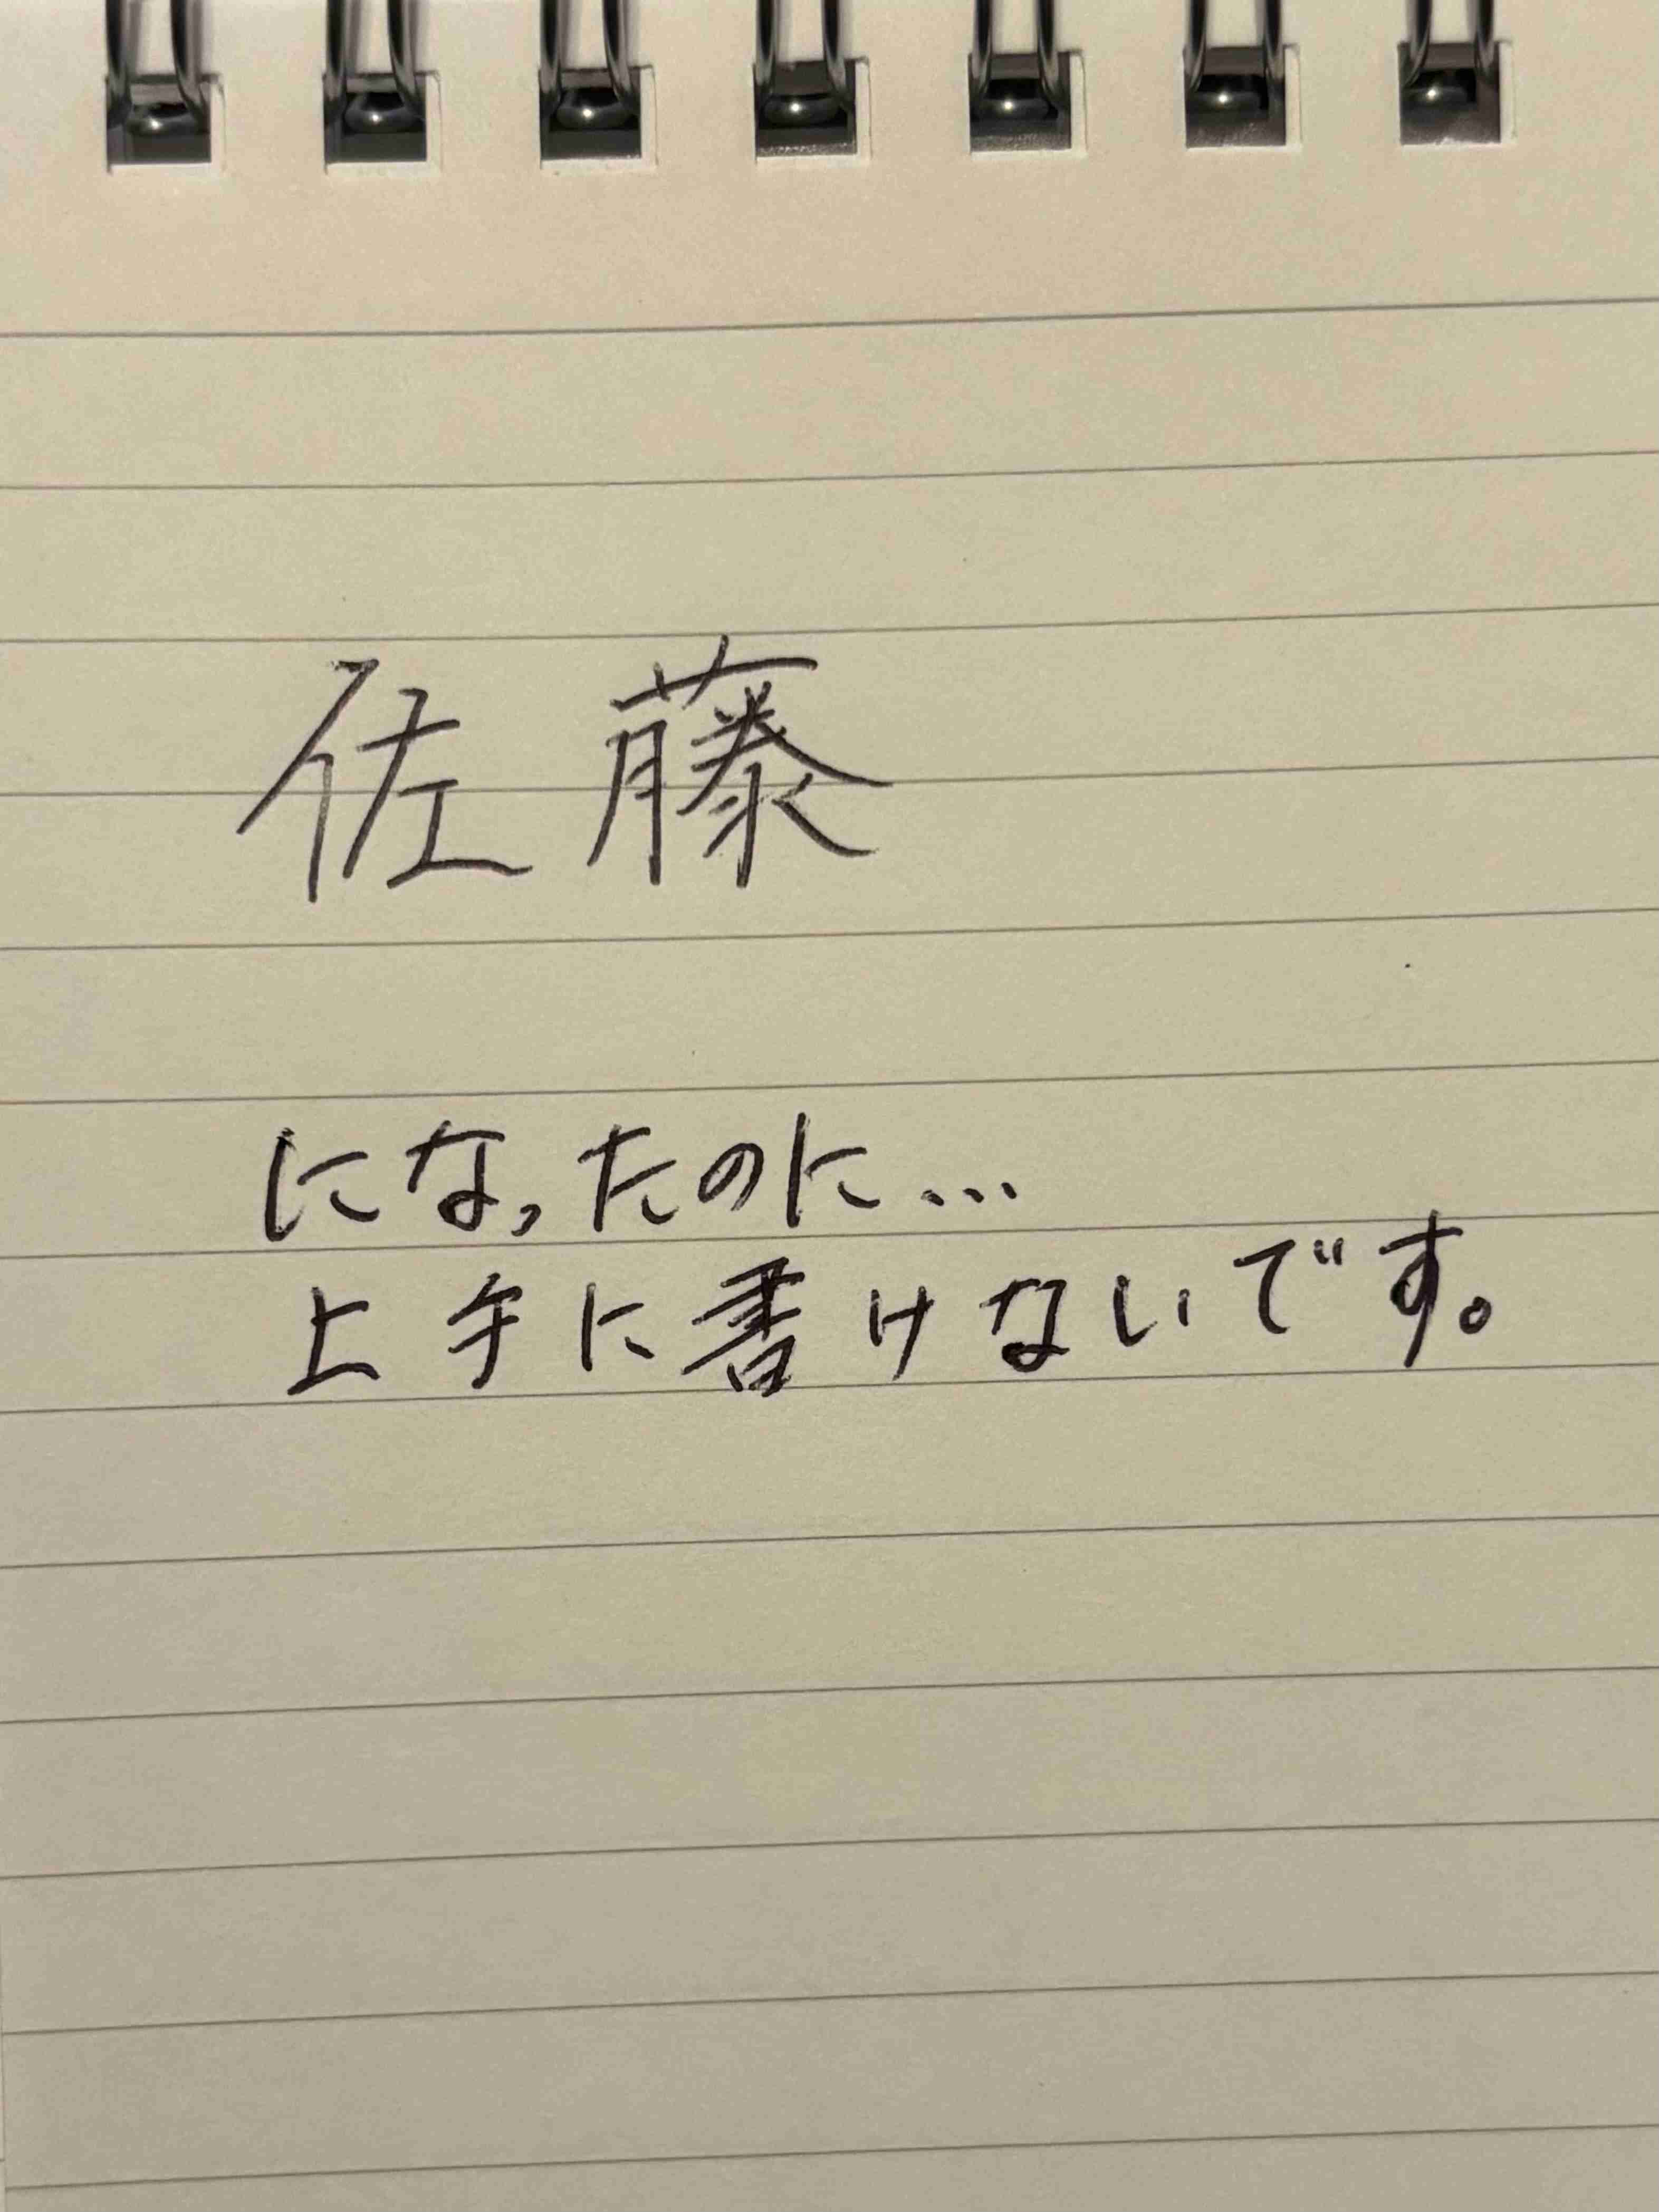 佐藤
になったのに...
上手に書けないです。